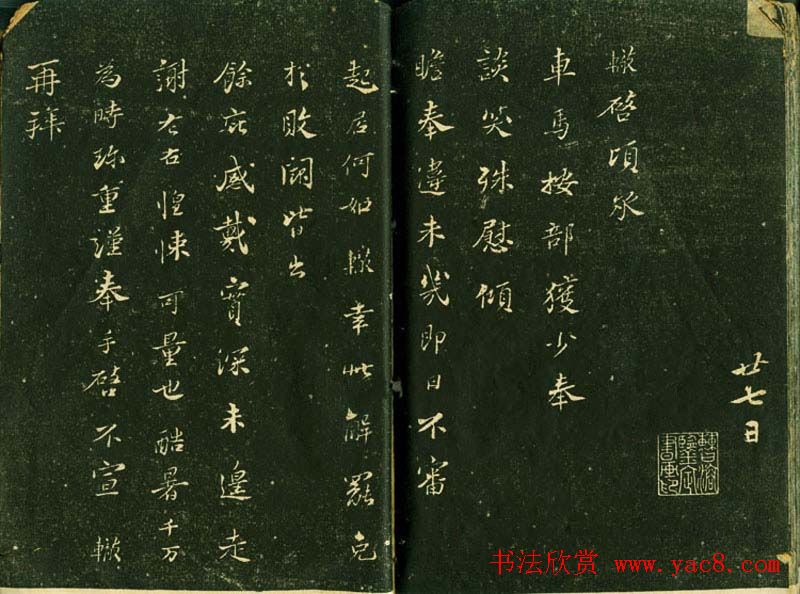 廿七日
曹溶
鑒定
書畫印
轍啓頃承
車馬按部獲少奉
談笑殊慰傾
瞻奉違未幾即日不審
起居何如轍幸此解罷免
於敗闕皆出
餘庇感戴實深未遑走
謝左右惶悚可量也酷暑千万
為時珍重謹奉手啓不宣 轍
再拜
书法欣赏 www.yac8.com